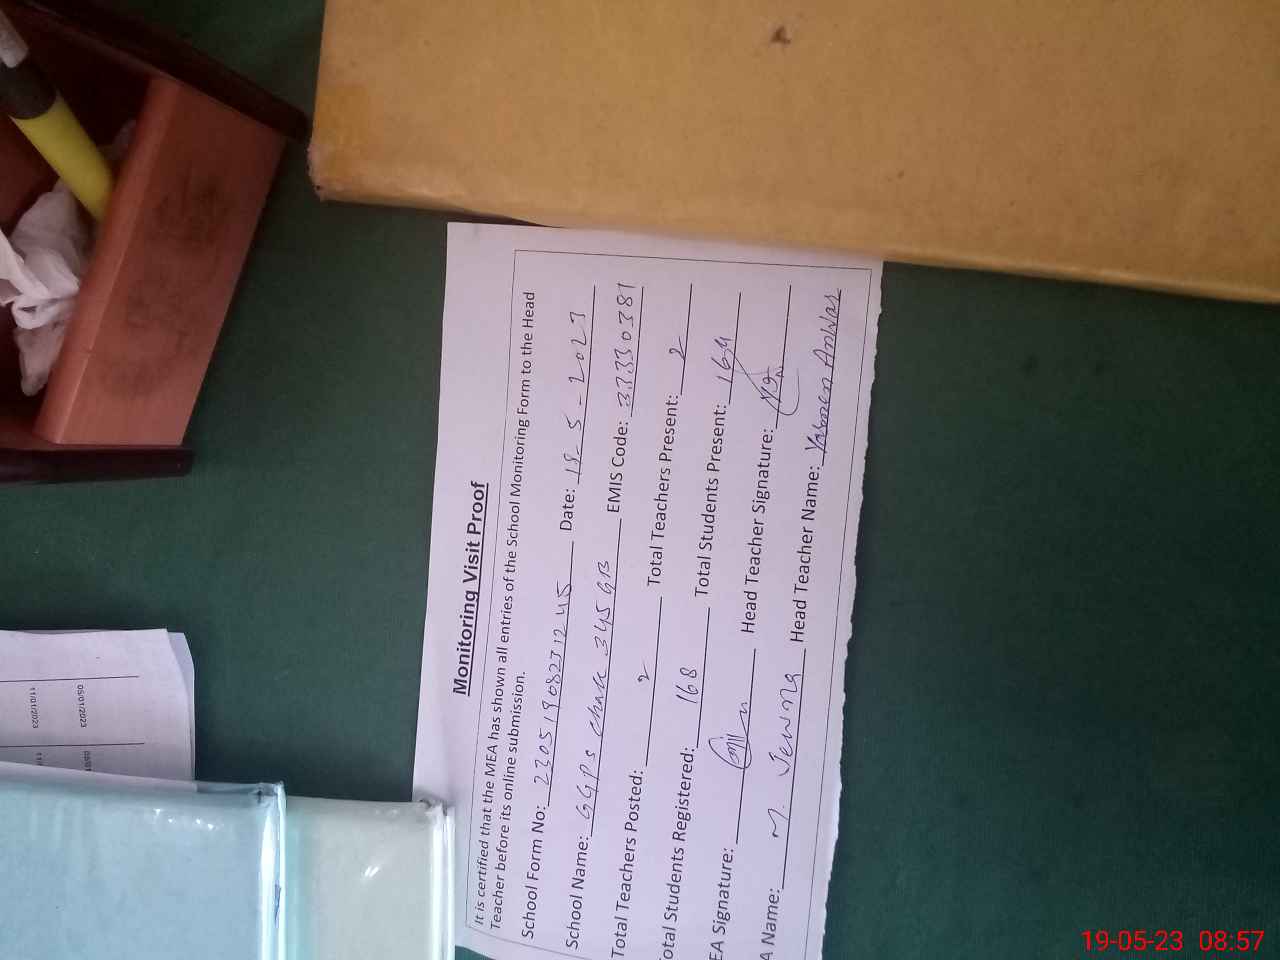 Monitoring Visit Proof
It is certified that the MEA has shown all entries of the School Monitoring Form to the Head
Teacher before its online submission.
School Form No: 23051908231245 Date: 19-5-2023
School Name: GGPS Chak 345 GB EMIS Code: 33330381
Total Teachers Posted: 2 Total Teachers Present: 2
otal Students Registered: 168 Total Students Present: 164
EA Signature: Head Teacher Signature:
A Name: M. Head Teacher Name: Yasmeen
05/01/2023
11/01/2023
19-05-23 08:57